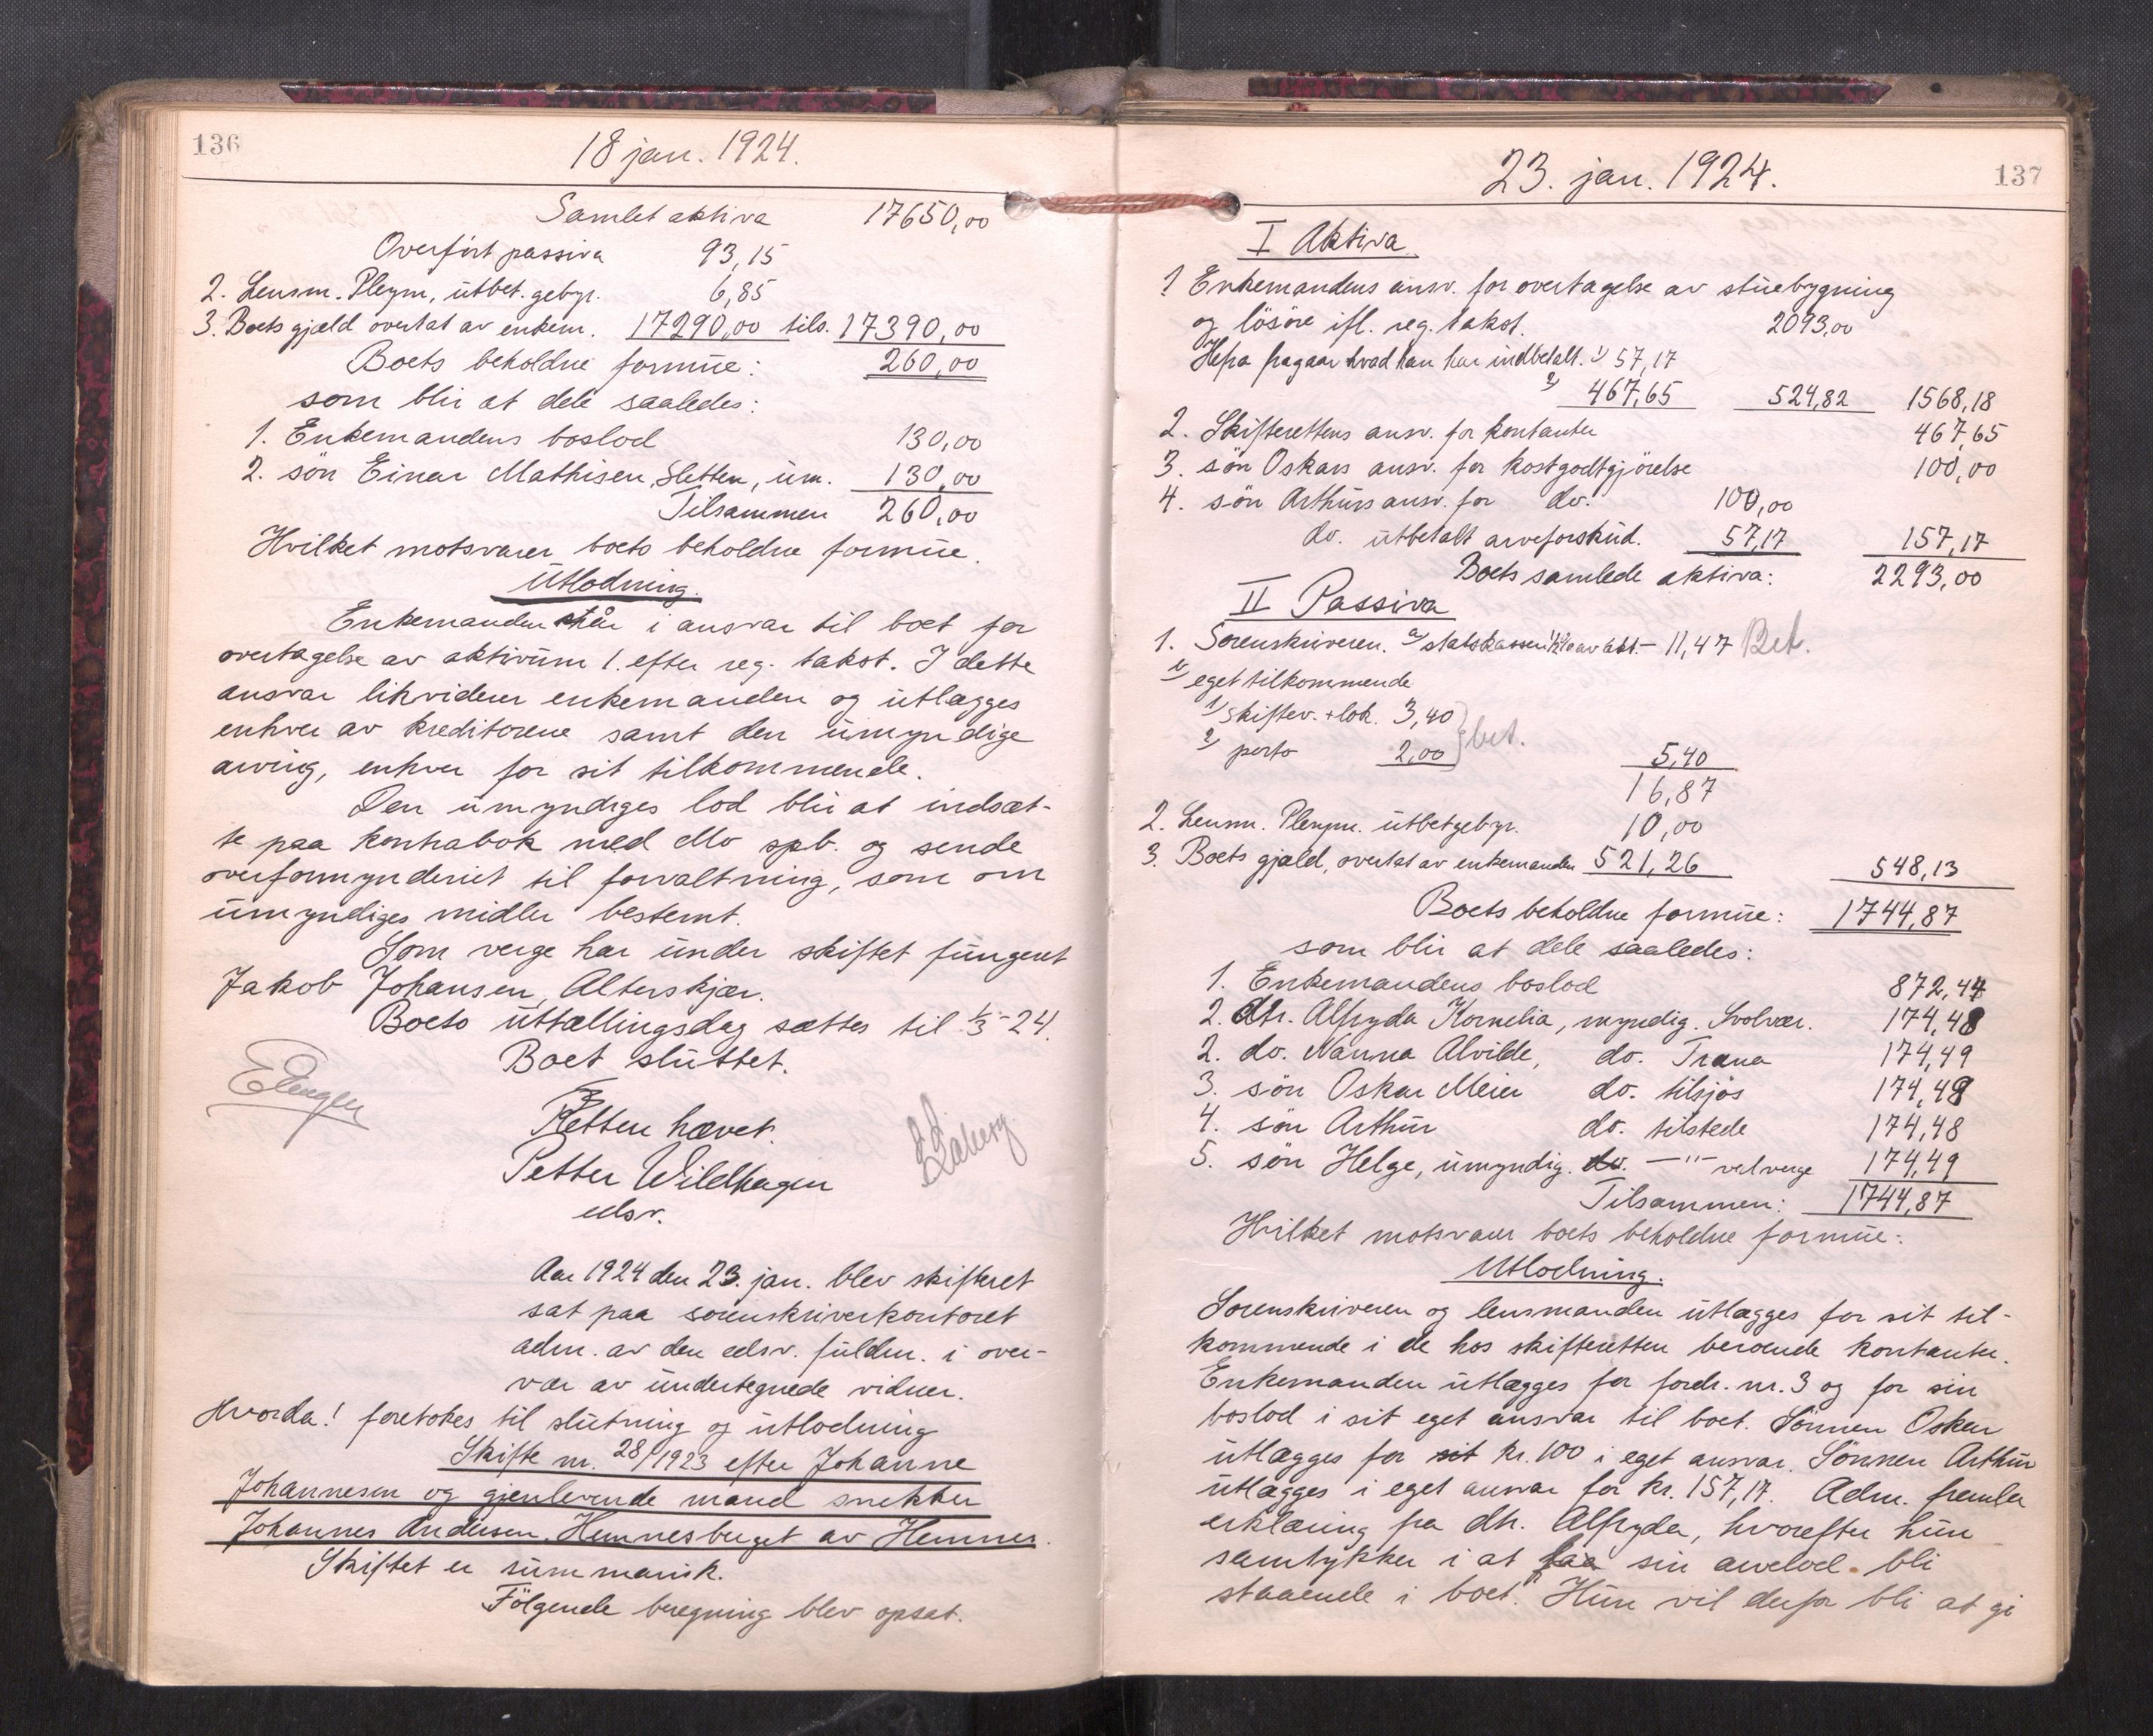 136
18 jan. 1924.
Samlet aktiva 17650,00
Overført passiva 93,15
2. Lensm. Pleym, utbet. gebyr. 6,85
3. Boets gjæld overtat av enkem. 17290,00 tils. 17390,00
Boets beholdne formue: 260,00
som blir at dele saaledes:
1. Enkemandens boslod 130,00
2. søn Einar Mathisen, Sletten, um. 130,00
Tilsammen 260,00
Hvilket motsvarer boets beholdne formue.
Utlodning.
Enkemanden står i ansvar til boet for
overtagelse av aktivum 1. efter reg. takst. I dette
ansvar likviderer enkemanden og utlægges
enhver av kreditorene samt den umyndige
arving, enhver for sit tilkommende.
Den umyndiges lod blir at indsæt-
te paa kontrabok med Mo spb. og sende
overformynderiet til forvaltning, som om
umyndiges midler bestemt.
Som verge har under skiftet fungeret
Jakob Johansen, Alterskjær.
Boets uttællingsdag sættes til 1/3-24.
Boet sluttet.
Retten hævet.
Petter Wildhagen
edsv.
Aar 1924 den 23. jan. blev skifteret
sat paa sorenskriverkontoret
adm. av den edsv. fuldm. i over-
vær av undertegnede vidner.
Hvorda! foretokes til slutning og utlodning
Skifte nr. 28/1923 efter Johanne
Johannesen og gjenlevende mand snekker
Johannes Andersen, Hemnesberget av Hemnes.
Skiftet er summarisk.
Følgende beregning blev opsat.
137
23. jan. 1924.
I Aktiva
1 Enkemandens ansv. for overtagelse av stuebygning
og løsøre ifl. reg. takst. 2093,00
Herfra fragaar hvad han har indbetalt. 1) 57,17
2) 467,65 524,82 1568,18
2. Skifterettens ansv. for kontanter 467,65
3. søn Oskars ansv. for kostgodtgjørelse 100,00
4. søn Arthurs ansv. for do. 100,00
do. utbetalt arveforskud. 57,17 157,17
Boets samlede aktiva: 2293,00
II Passiva
1. Sorenskriveren. a/ statskassen 1/2% av akt. - 11,47 Bet.
b/ eget tilkommende
1) skiftev. + lok. 3,40
2) porto 2,00 } bet. 5,40
16,87
2. Lensm. Pleym. utbet gebyr. 10,00
3. Boets gjæld, overtat av enkemanden 521,26 548,13
Boets beholdne formue: 1744,87
som blir at dele saaledes:
1. Enkemandens boslod 872,44
2. dtr. Alfryda Kornelia, myndig. Svolvær. 174,48
2. do. Nanna Alvilde, do. Træna 174,49
3. søn Oskar Meier do. tilsjøs 174,49
4. søn Arthur do. tilstede 174,48
5. søn Helge, umyndig. do. —"— ved verge 174,49
Tilsammen: 1744,87
Hvilket motsvarer boets beholdne formue:
Utlodning.
Sorenskriveren og lensmanden utlægges for sit til-
kommende i de hos skifteretten beroende kontanter.
Enkemanden utlægges for fordr. nr. 3 og for sin
boslod i sit eget ansvar til boet. Sønnen Oskar
utlægges for sit kr. 100 i eget ansvar. Sønnen Arthur
utlægges i eget ansvar for kr. 157,17. Adm. fremla
erklæring fra dtr. Alfryda, hvorefter hun
samtykker i at faa sin arvelod bli
staaende i boet." Hun vil derfor bli at gi